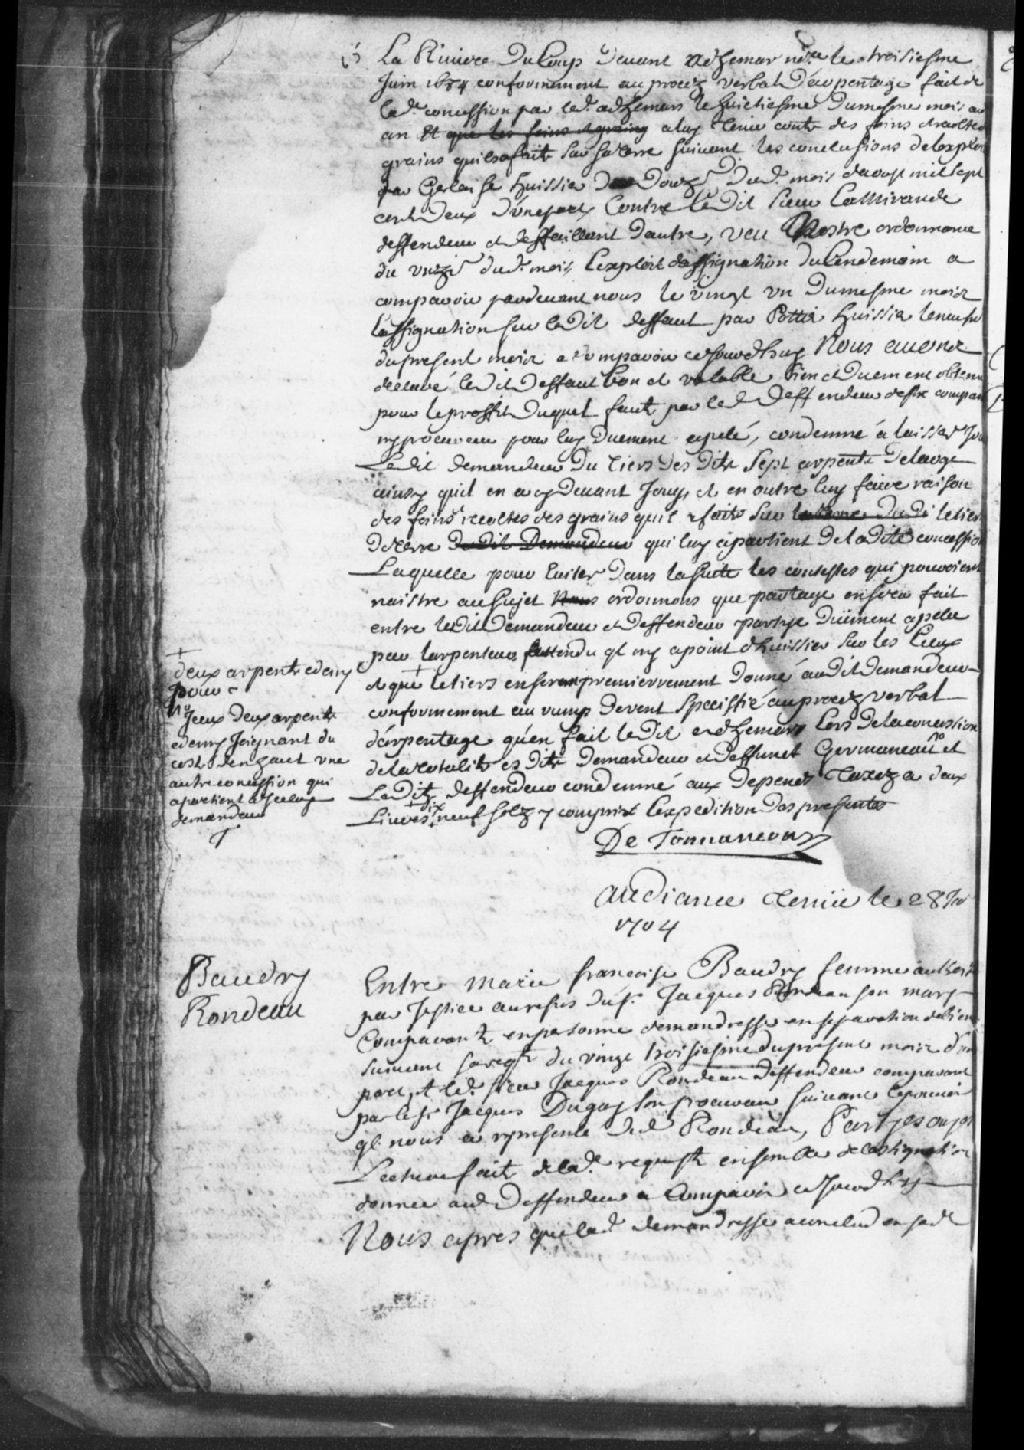 La Riviere Du Loup devant Adhemar nore le troisiesme
Juin 1684 conformement au procez verbal d'arpentage fait de
lad. concession par led. adhemar le huictiesme du mesme mois
an Et que les foins et grains a luy tenir conte des foins et recoltes
grains qu'il a fait sur sa terre suivant les conclusions de l'exploit
par Gelaise huissier Du Douze du d. mois d'aoust mil sept
cent deux d'une part Contre le dit Sieur Lammirande
deffendeur et deffaillant d'autre, veu Nostre ordonnance
du unze du d. mois l'exploit d'assignation du lendemain a
comparoir pardevant nous le vingt un du mesme mois
l'assignation sur le dit deffaut par Pottier huissier le
du present mois a comparoir ce Jourd'huy Nous avons
declaré le dit deffaut bon et valable bien et duement obtenu
pour le proffit duquel faute par le d. deffendeur
ny procureur pour luy duement apelé, condemné a laisser
Le dit demandeur du tiers des dits sept arpents de large
ainsy qu'il en a cy devant Jouy, et en outre luy faire raison
des foins recoltes des grains qu'il a faits sur la terre du dit le tiers
de terre du dit Demandeur qui luy apartient de la dite concession
Laquelle pour eviter dans la suite les contestes qui pouroient
naistre au sujet Nous ordonnons que partage en sera fait
entre le dit demandeur et deffendeur partye duement apelée
par l'arpenteur attendu ql ny a point d'huissier sur les lieux
et que le tiers en sera premierement donné au dit demandeur
conformement au rump de vent speciffié au procez verbal
d'arpentage qu'en fait le dit adhemar lors de la concession
de la totalité es dits demandeur et deffunct Germaneau et
Le dit deffendeur condemné aux depens Taxez a deux
Livres dix neuf solz y compris l'expedition des presentes
De Tonnancour
+
deux arpents et demy
pour
Iceux deux arpents
et demy Joignant du
costé
autre concession qui
apartient a
demandeur
Audiance Tenüe le 28
1704
Baudry
Rondeau
Entre Marie françoise Baudry femme
par Justice au refus du Sr. Jacques Rondeau son mary
Comparante en personne demandresse en separation de biens
suivant sa reqte du vingt troisiesme du present mois d'une
part, et le d. Sieur Jacques Rondeau deffendeur comparant
par le Sr Jacques Dugay son procureur suivant le pouvoir
ql nous a representé dud Rondeau, Partyes ouyes
Lecture faite de lad. requeste ensemble de l'assignation
donnee aud deffendeur a Comparoir ce Jourd'huy
Nous apres que lad. demandresse a conclud en sad